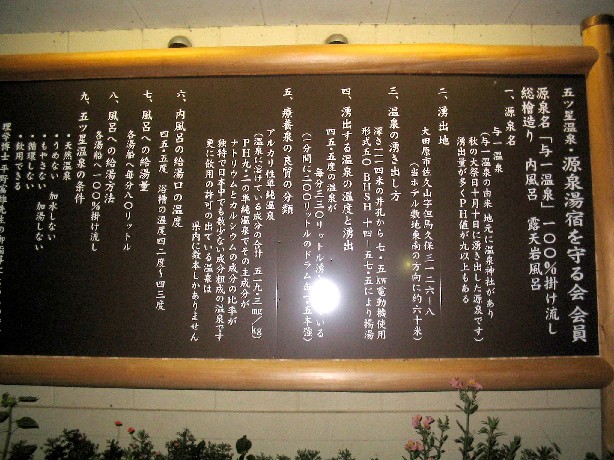 五ツ星温泉・源泉湯宿を守る会 会員
源泉名「与一温泉」一〇〇％掛け流し
総檜造り 内風呂 露天岩風呂
一、源泉名
与一温泉
(与一温泉の由来 地元に温泉神社があり
秋の大祭日十月十日に湧き出した源泉です)
湧出量が多くPH値が九以上もある
二、湧出地
大田原市佐久山字但馬久保三一二六－八
(当ホテル敷地東南の方向に約六十米)
三、温泉の湧き出し方
深さ一二一四米の井孔から 七・五kw電動機使用
形式五〇BHSH 一四－五七・五により揚湯
四、湧出する温泉の温度と湧出
四五・七度の温泉が
毎分二三〇リットル湧いている
(一分間に二〇〇リットルのドラム缶で五本強)
五、療養泉の良質の分類
アルカリ性単純温泉
(温泉に溶けている成分の合計 五一九・三mg/kg)
PH九・二の単純温泉でその主成分が
ナトリウムとカルシウムの成分の比率が
独特で日本中でも数少ない成分組成の温泉です
更に飲用の許可の出ている温泉は
県内に数本しかありません
六、内風呂の給湯口の温度
四五・五度 浴槽の温度四二度～四三度
七、風呂への給湯量
各湯船へ毎分八〇リットル
八、風呂への給湯方法
各湯船へ一〇〇％掛け流し
九、五ツ星温泉の条件
・天然温泉
・うめない 加水しない
・もやさない 加湯しない
・循環しない
・飲用できる